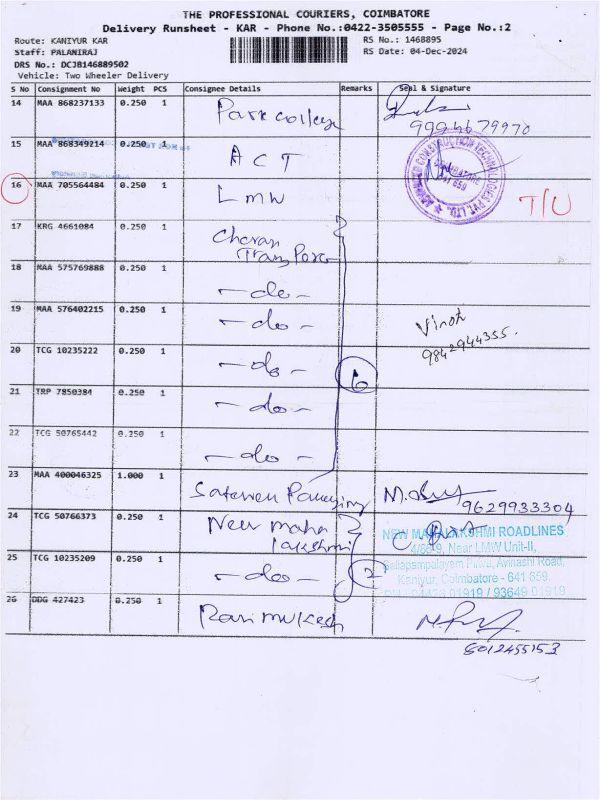 THE PROFESSIONAL COURIERS, COIMBATORE
Delivery Runsheet - KAR - Phone No.:0422-3505555 - Page No.:2
Route: KANIYUR KAR
RS No.: 1468895
Staff: PALANIRAJ
RS Date: 04-Dec-2024
DRS No.: DCJB146889502
Vehicle: Two Wheeler Delivery
S No Consignment No Weight PCS Consignee Details Remarks Seal & Signature
14 MAA 868237133 0.250 1 Park college
9994679970
15 MAA 868349214 0.250 1 ACT
16 MAA 705564484 0.250 1 LMW T/U
17 KRG 4661084 0.250 1 Charan
Transport
18 MAA 575769888 0.250 1 -do-
19 MAA 576402215 0.250 1 -do- Vinoth
9842944355.
20 TCG 10235222 0.250 1 -do- 6
21 TRP 7850384 0.250 1 -do-
22 TCG 50765442 0.250 1 -do-
23 MAA 400046325 1.000 1
9629933304
24 TCG 50766373 0.250 1 New maha
lakshmi
NEW MAHALAKSHMI ROADLINES
Near LMW Unit-II,
25 TCG 10235209 0.250 1 -do- 2
Avinashi Road,
Kaniyur, Coimbatore - 641 659.
01919 / 93649 01919
26 DDG 427423 0.250 1 Ravi mukesh
8012455153